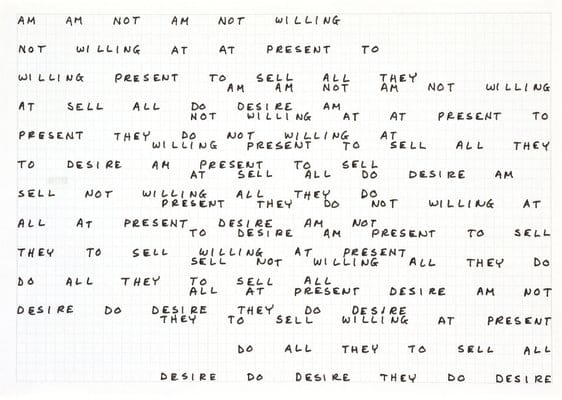 AM AM NOT AM NOT WILLING
NOT WILLING AT AT PRESENT TO
WILLING PRESENT TO SELL ALL THEY
AM AM NOT AM NOT WILLING
AT SELL ALL DO DESIRE AM
NOT WILLING AT AT PRESENT TO
PRESENT THEY DO NOT WILLING AT
WILLING PRESENT TO SELL ALL THEY
TO DESIRE AM PRESENT TO SELL
AT SELL ALL DO DESIRE AM
SELL NOT WILLING ALL THEY DO
PRESENT THEY DO NOT WILLING AT
ALL AT PRESENT DESIRE AM NOT
TO DESIRE AM PRESENT TO SELL
THEY TO SELL WILLING AT PRESENT
SELL NOT WILLING ALL THEY DO
DO ALL THEY TO SELL ALL
ALL AT PRESENT DESIRE AM NOT
DESIRE DO DESIRE THEY DO DESIRE
THEY TO SELL WILLING AT PRESENT
DO ALL THEY TO SELL ALL
DESIRE DO DESIRE THEY DO DESIRE